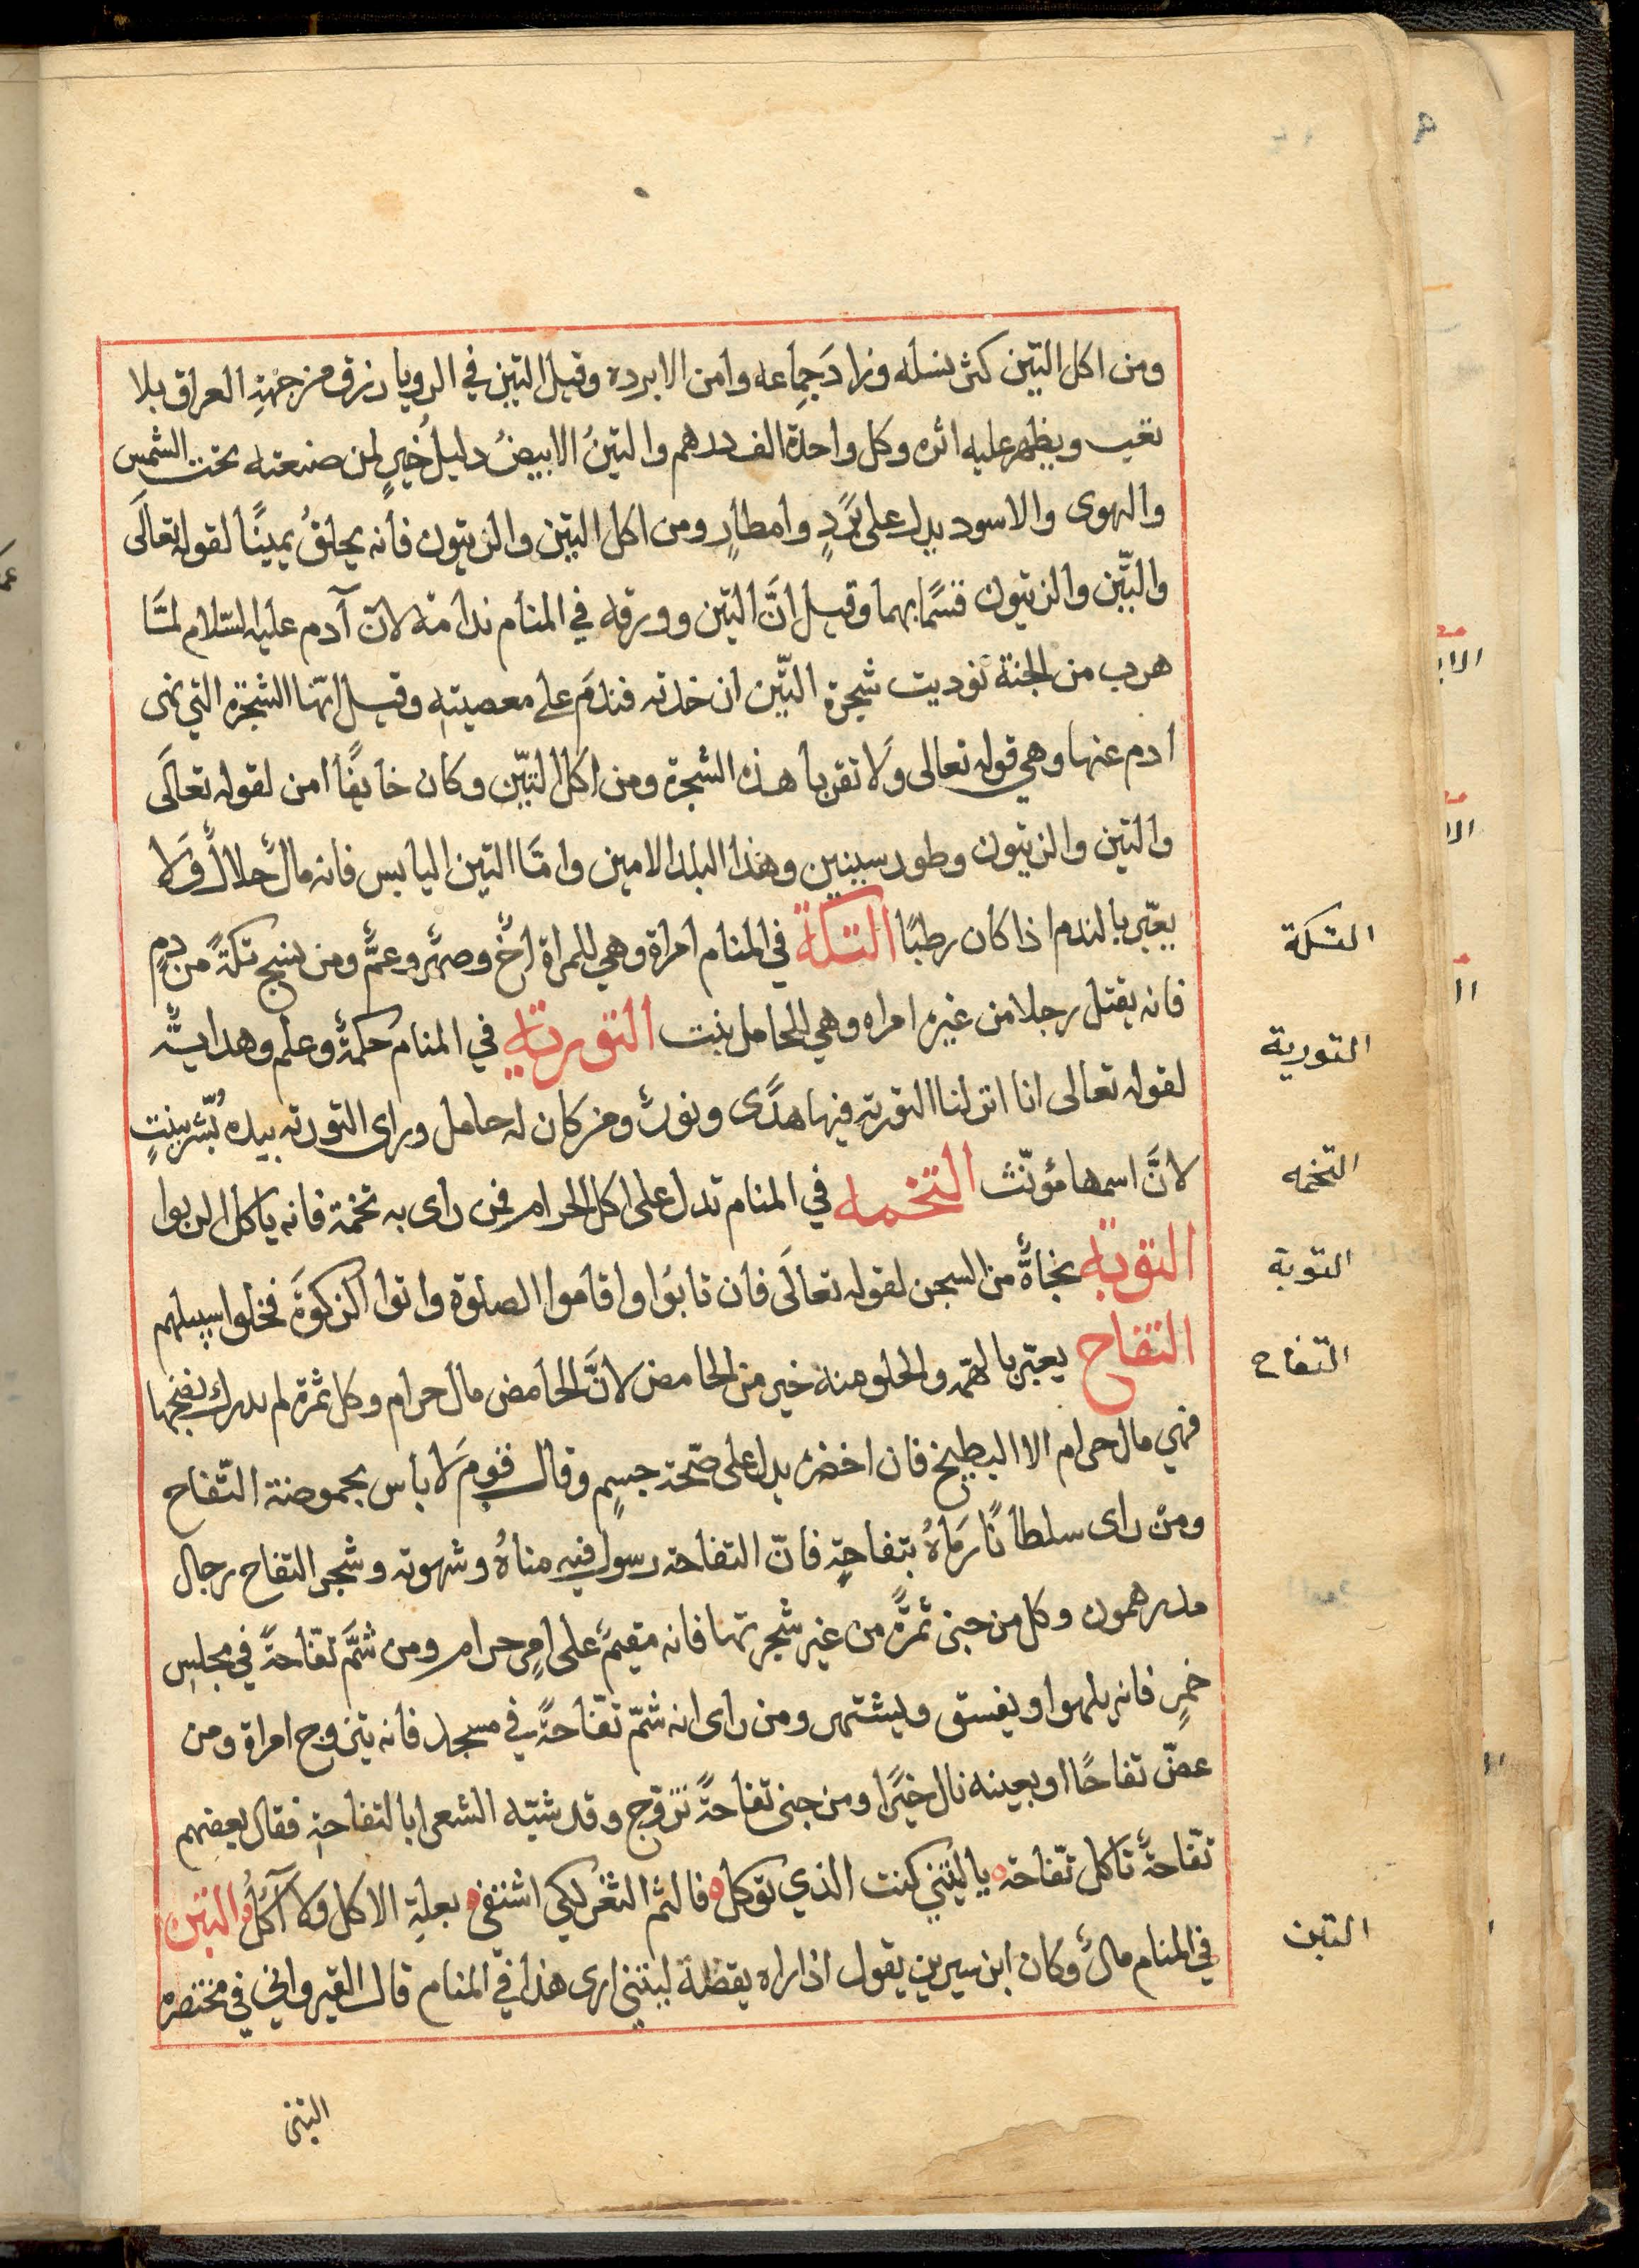 ومن اكل التين كثر نسله وزاد جماعه وامن الابرده وقيل التين في الرويا رزق من جهة العراق بلا
تعب ويظهر عليه اثره وكل واحدة الف درهم والتين الابيض دليل خير لمن صنعته تحت الشمس
والهوى والاسود يدل على برد وامطار ومن اكل التين والزيتون فانه يحلف يمينًا لقوله تعالى
والتّين والزيتون قسمًا بهما وقيل انّ التين وورقه في المنام ندامة لانّ آدم عليه السّلام لمّا
هرب من الجنة نوديت شجرة التّين ان خذته فندم على معصيته وقيل انّها الشجرة التي نهى
ادم عنها وهي قوله تعالى ولا تقربا هذه الشجرة ومن اكل التّين وكان خايفًا امن لقوله تعالى
والتين والزيتون وطور سينين وهذا البلد الامين وامّا التين اليابس فانه مال حلال ولا
يعبّر بالندم اذا كان رطبًا التكة في المنام امراة وهي للمراة اخ وصهر وعمّ ومن نسج تكةً من دم
فانه يقتل رجلا من غيره امراه وهي للحامل بنت التورية في المنام حكمة وعلم وهداية
لقوله تعالى انا انزلنا التورية فيها هدًى ونور ومن كان له حامل وراى التورته بيده بُشّر ببنتٍ
لانّ اسمها مؤنّث التخمه في المنام تدل على اكل الحرام فمن راى به تخمة فانه ياكل الربوا
التوبة نجاةٌ من السجن لقوله تعالى فان تابوا واقاموا الصلوة واتوا الزكوة فخلوا سبيلهم
التفاح يعبّر بالهمّه والحلو منه خير من الحامض لانّ الحامض مال حرام وكل ثمرة لم يدرك نضجها
فهي مال حرام الا البطيخ فان اخضره يدل على صحّة جسمٍ وقال قوم لا باس بحموضة التّفاح
ومن راى سلطانًا رماهُ بتفاحةٍ فانّ التفاحة رسول فيه مناهُ وشهوته وشجر التفاح رجال
مدرهمون وكل من جنى ثمرةً من غير شجرتها فانه مقيم على امرٍ حرام ومن شمّ تفّاحةً في مجلس
خمرٍ فانه يلهوا ويفسق ويشتهر ومن راى انه شمّ تفّاحةً في مسجد فانه يتزوج امراة ومن
عضّ تفاحًا او بعينه نال خيرًا ومن جنى تفاحةً تزوّج وقد شبّه الشعرا بالتفاحة فقال بعضهم
تفّاحةً تاكل تفّاحته يا ليتني كنت الذي توكل فالثم الثغر لكي اشتفي بعلة الاكل ولا آكلُ التبن
في المنام مال وكان ابن سيرين يقول اذا راه يقظة ليتني ارى هذا في المنام قال القيرواني في مختصره
التبن
التكة
التورية
التخمه
التوبة
التفاح
التبن